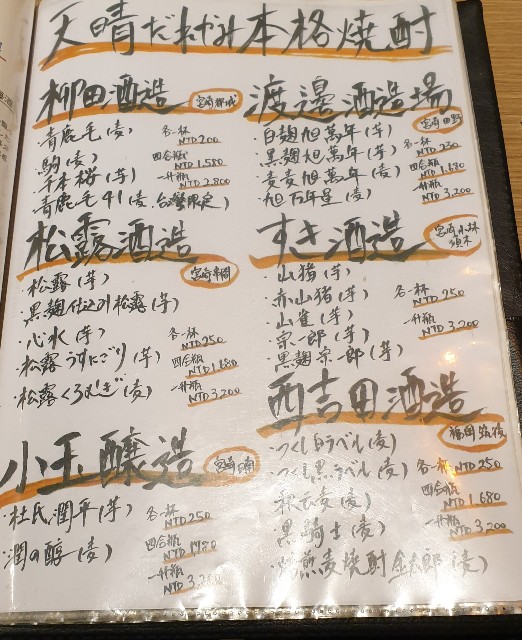 天晴だれやみ本格焼酎
柳田酒造
宮崎都城
青鹿毛(麦)
駒(麦)
千本桜(芋)
青鹿毛41(麦、台灣限定)
各一杯
NTD200
四合瓶
NTD1,580
一升瓶
NTD2,800
渡邊酒造場
宮崎田野
白麹旭萬年(芋)
黒麹旭萬年(芋)
麦麦旭萬年(麦)
旭万年星(麦)
各一杯
NTD230
四合瓶
NTD1,680
一升瓶
NTD3,200
松露酒造
宮崎串間
・松露(芋)
・黒麹仕込み松露(芋)
・心水(芋)
・松露うすにごり(芋)
・松露くろむぎ(麦)
各一杯
NTD250
四合瓶
NTD1,680
一升瓶
NTD3,200
すき酒造
宮崎小林
須木
・山猪(芋)
・赤山猪(芋)
・山雀(芋)
・宗一郎(芋)
・黒麹宗一郎(芋)
各一杯
NTD250
一升瓶
NTD3,200
小玉醸造
宮崎日南
・杜氏潤平(芋)
・潤の醇(麦)
各一杯
NTD250
四合瓶
NTD1,780
一升瓶
NTD3,200
西吉田酒造
福岡筑後
・つくし白ラベル(麦)
・つくし黒ラベル(麦)
秋云麦(麦)
黒騎士(麦)
燕麦焼酎金太郎(麦)
各一杯
NTD250
四合瓶
NTD1,680
一升瓶
NTD3,200